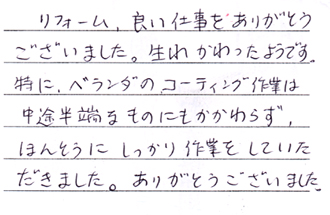 リフォーム、良い仕事をありがとう
ございました。生れかわったようです。
特に、ベランダのコーティング作業は
中途半端なものにもかかわらず、
ほんとうにしっかり作業をしていた
だきました。ありがとうございました